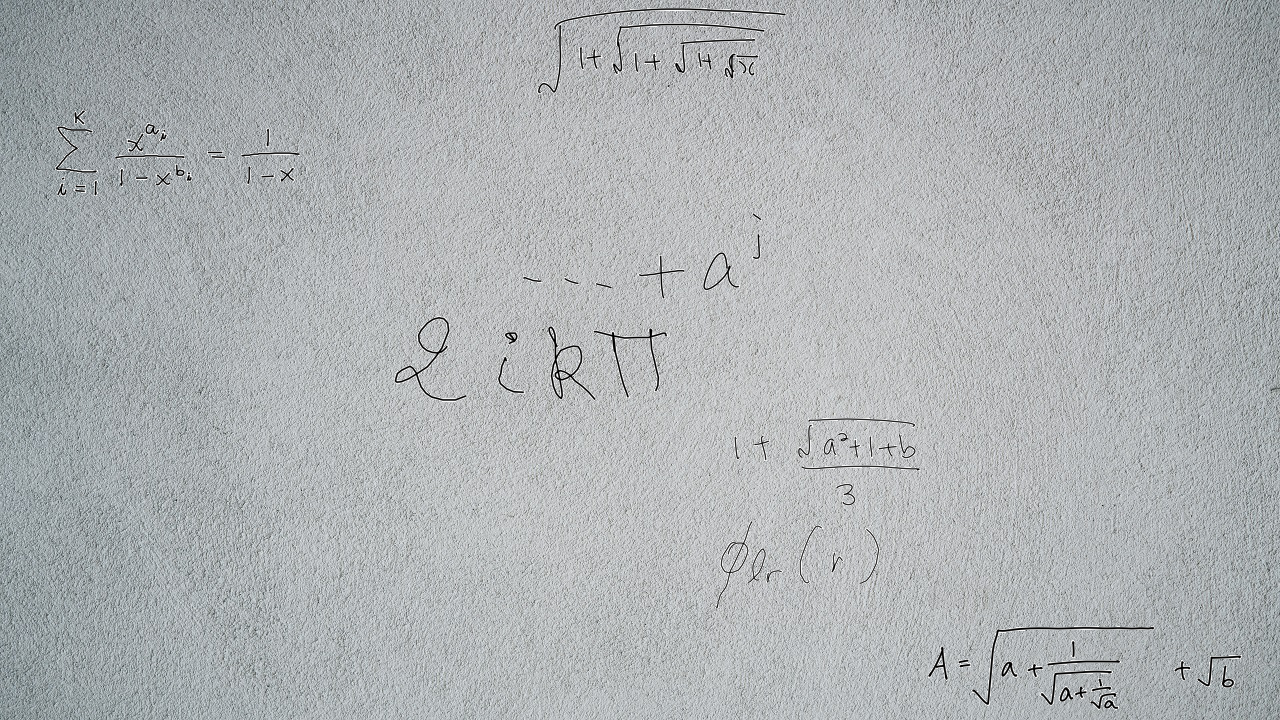 \sqrt{1+\sqrt{1+\sqrt{1+\sqrt{x}}}}
\sum_{i=1}^{K} \frac{x^{a_i}}{1-x^{b_i}} = \frac{1}{1-x}
\dots + a^j
2ikπ
1 + \frac{\sqrt{a^2+1+b}}{3}
\phi_{lr}(r)
A = \sqrt{a+\frac{1}{\sqrt{a+\frac{1}{\sqrt{a}}}}} + \sqrt{b}